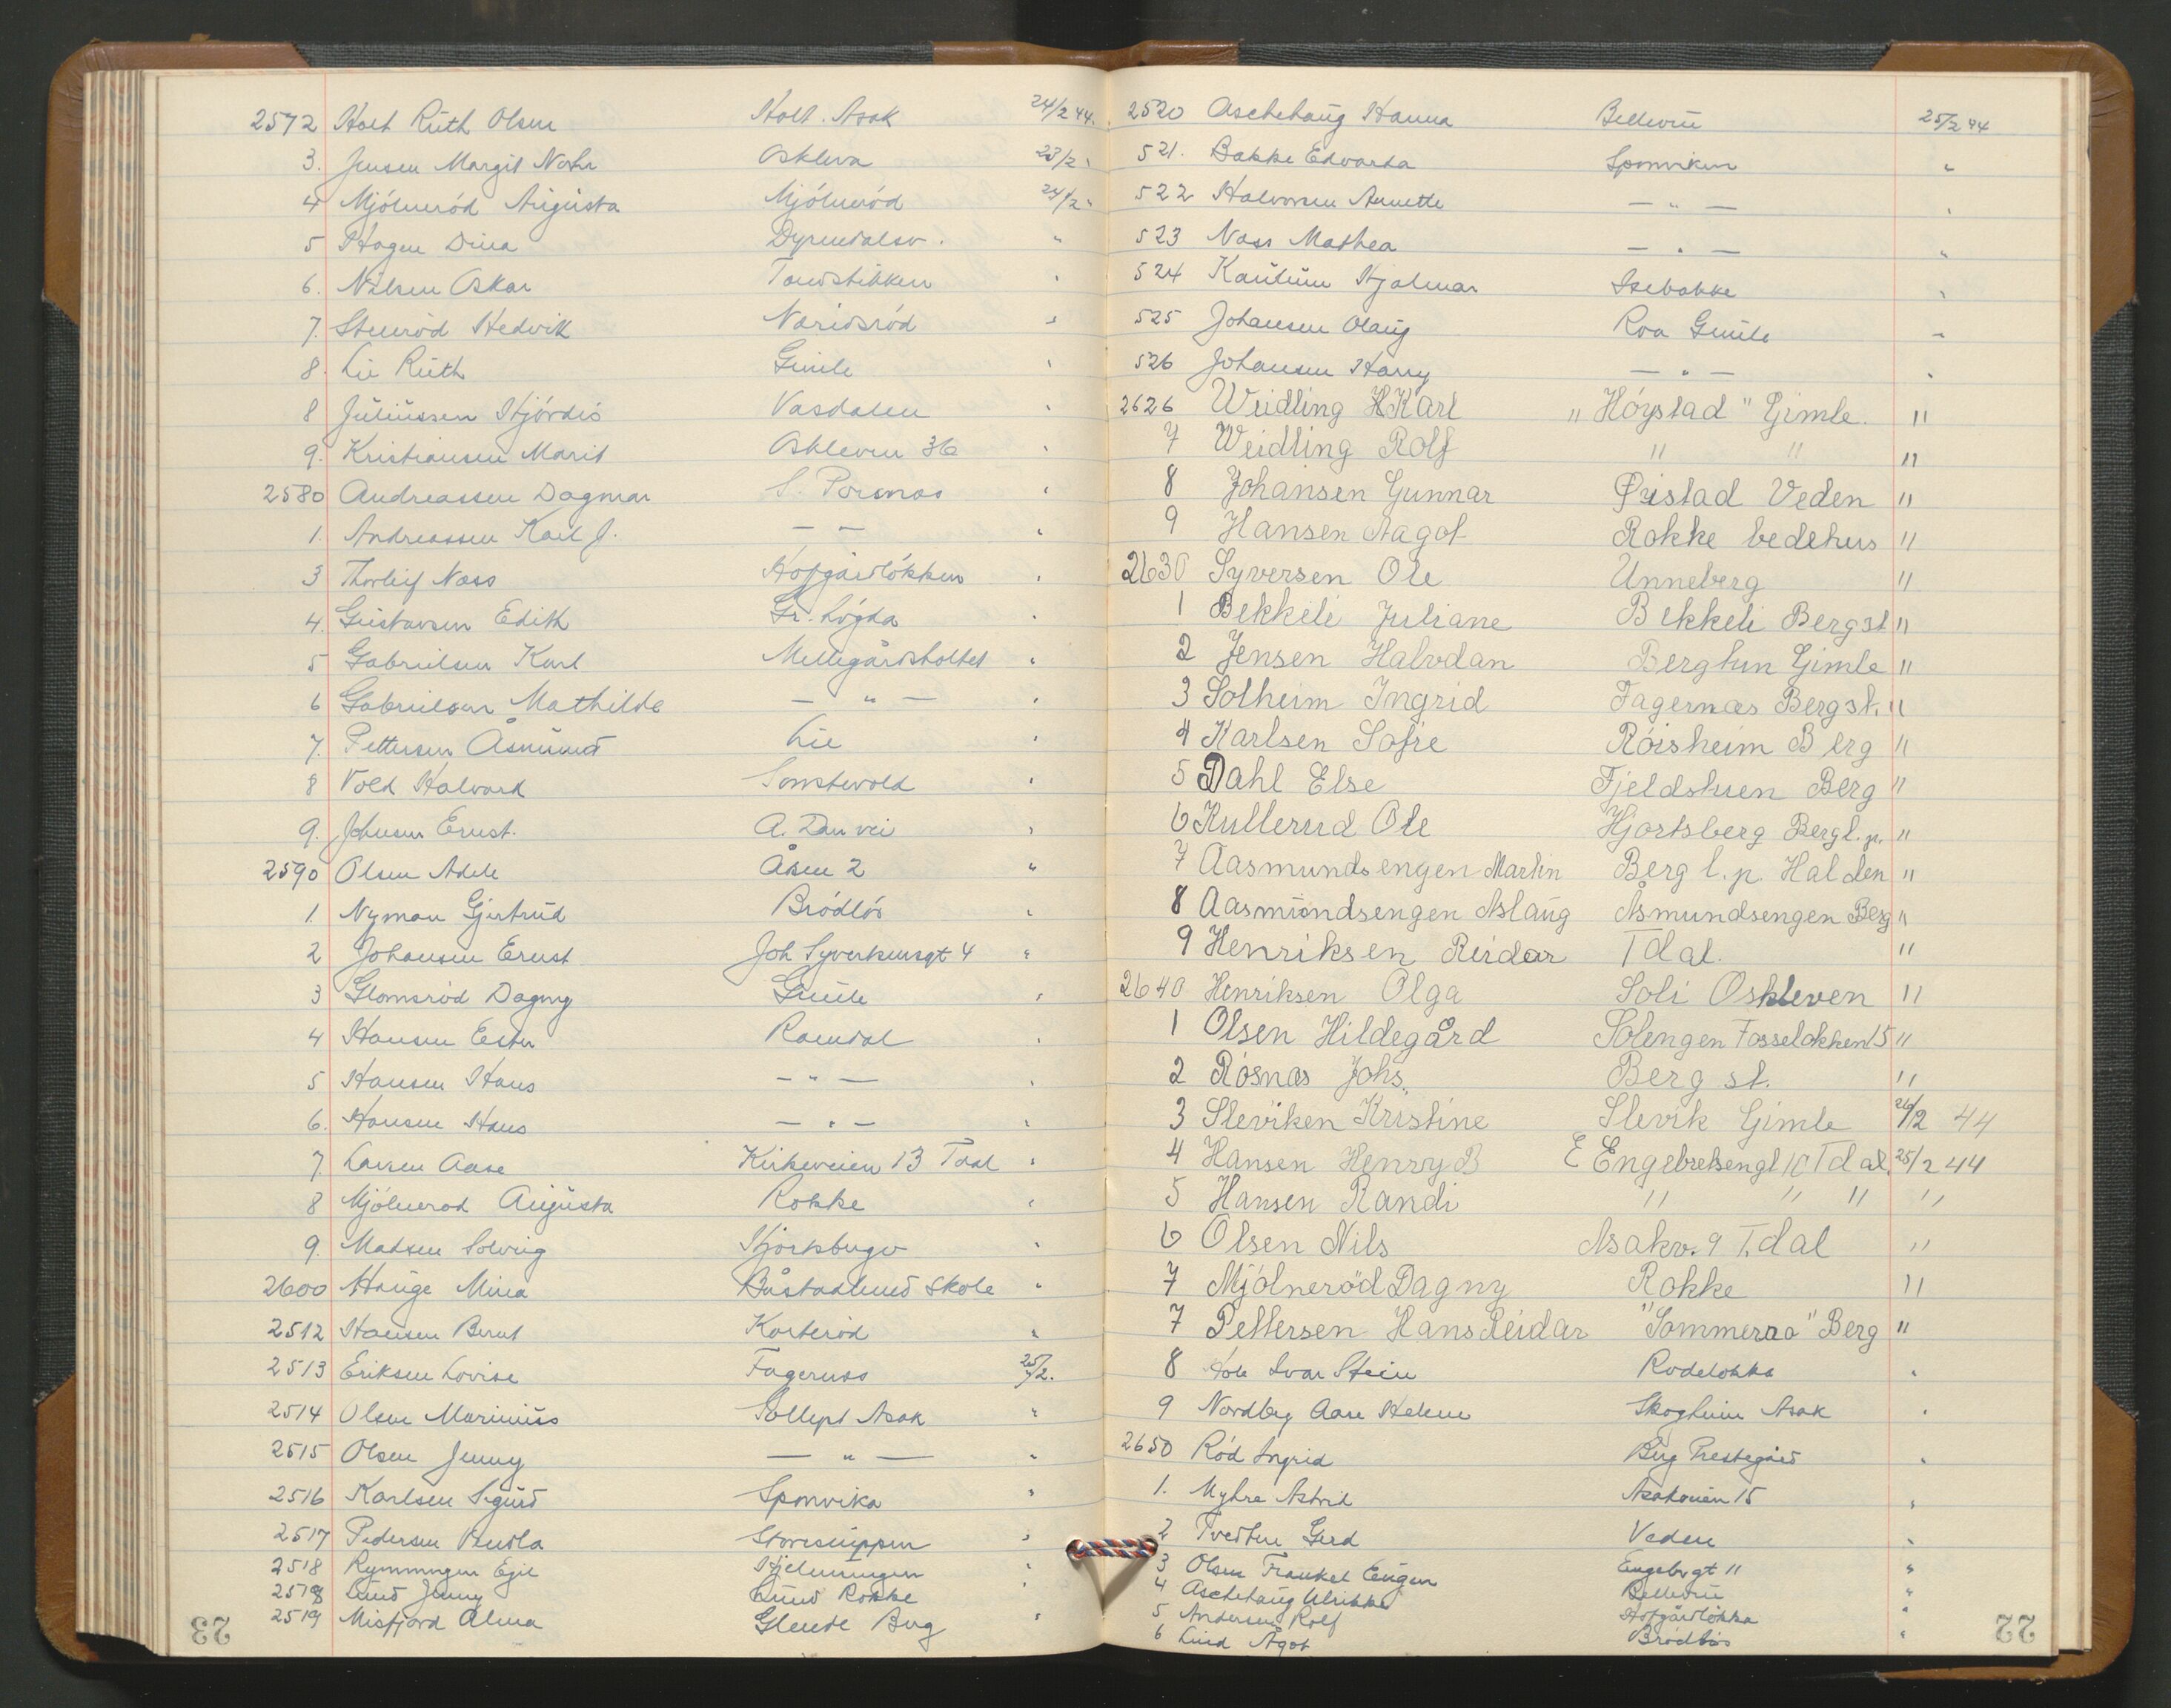 2572 Holt Ruth Olsen Holt. Asak 24/2 44.
3. Jensen Margit Nohr Askleva 23/2 "
4 Mjølnerød Augusta Mjølnerød 24/2 "
5 Hagen Dina Dyrendalsv. "
6. Nilsen Oskar Tomstikken "
7. Stenrød Hedvik Naridsrød "
8. Lie Ruth Gimle "
8 Juliussen Hjørdis Vasdalen "
9. Kristiansen Marit Oskleven 36 "
2580 Andreassen Dagmar S. Porsnas "
1. Andreassen Karl J. — — "
3 Thorleif Næss Hofgårdløkken "
4. Gustavsen Edith Gr. Løgda "
5 Gabrielsen Karl Mellegårdsholtet "
6 Gabrielsen Mathilde — " — "
7. Pettersen Åsmund Lie "
8 Vold Halvard Tomstevold "
9. Johnsen Ernst. A. Dan vei "
2590 Olsen Adele Åsen 2 "
1. Nyman Gjertrud Brødløs "
2 Johansen Ernst Joh Syvertsensgt 4 "
3 Glomsrød Dagny Gimle "
4 Hansen Ester Ramdal "
5 Hansen Hans — " — "
6. Hansen Hans — " — "
7 Larsen Aase Kirkeveien 13 Tdal "
8 Mjølnerød Augusta Rokke "
9. Madsen Solveig Hjortsbergv "
2600 Hauge Mina Båstadlund Skole "
2512 Hansen Bernt Korterød "
2513 Eriksen Lovise Fagernæss 25/2.
2514 Olsen Marinius Solligt Asak "
2515 Olsen Jenny — " — "
2516 Karlsen Sigurd Sponvika "
2517 Pedersen Burla "
2518 Rymmingen Egil "
2518 Lund Jenny Lund Rokke "
2519 Misfjord Alma Glende Berg "
23
2520 Aschehaug Hanna Bellevue 25/2 44
521. Bakke Edvarda Sponviken "
522 Halvorsen Annette — " — "
523 Nass Mathea — " — "
524 Kautum Hjalmar Isebakke "
525 Johansen Olaug Roa Gimle "
526 Johansen Harry — " — "
2626 Weidling H Karl "Høystad" Gimle. "
7 Weidling Rolf " " "
8 Johansen Gunnar Øristad Veden "
9 Hansen Aagot Rokke bedehus "
2630 Syversen Ole Unneberg "
1 Bekkeli Juliane Bekkeli Bergst "
2 Jensen Halvdan Bergtun Gimle "
3 Solheim Ingrid Fagernæs Bergst. "
4 Karlsen Sofie Røisheim Berg "
5 Dahl Else Fjeldstuen Berg "
6 Kullerud Ole Hjortsberg Berg l.p. "
7 Aasmundsengen Martin Berg l.p. Halden "
8 Aasmundsengen Aslaug Åsmundsengen Berg "
9 Henriksen Reidar Tdal. "
2640 Henriksen Olga Soli Oskleven "
1 Olsen Hildegård Solengen Fosseløkken 15 "
2 Røsnæs Johs. Berg st. "
3 Sleviken Kristine Slevik Gimle 26/2 44
4 Hansen Henry B E Engebretsengt 10 Tdal. 25/2 44
5 Hansen Randi " " " "
6 Olsen Nils Asakv. 9 T.dal "
7 Mjølnerød Dagny Rokke "
7 Pettersen Hans Reidar "Sommerro" Berg "
8 Hole Ivar Stein Rødeløkka "
9 Nordby Aase Helene Skogheim Asak "
2650 Rød Ingrid Berg Prestegård "
1. Myhre Astrid Asakveien 15 "
2 Tvedten Gerd Veden "
3 Olsen Frankel Eugen Engebrgt 11 "
4 Aschehaug Ulrikke Bellevue "
5 Andersen Rolf Hofgårdløkka "
6 Lund Ågot Brødløs "
22